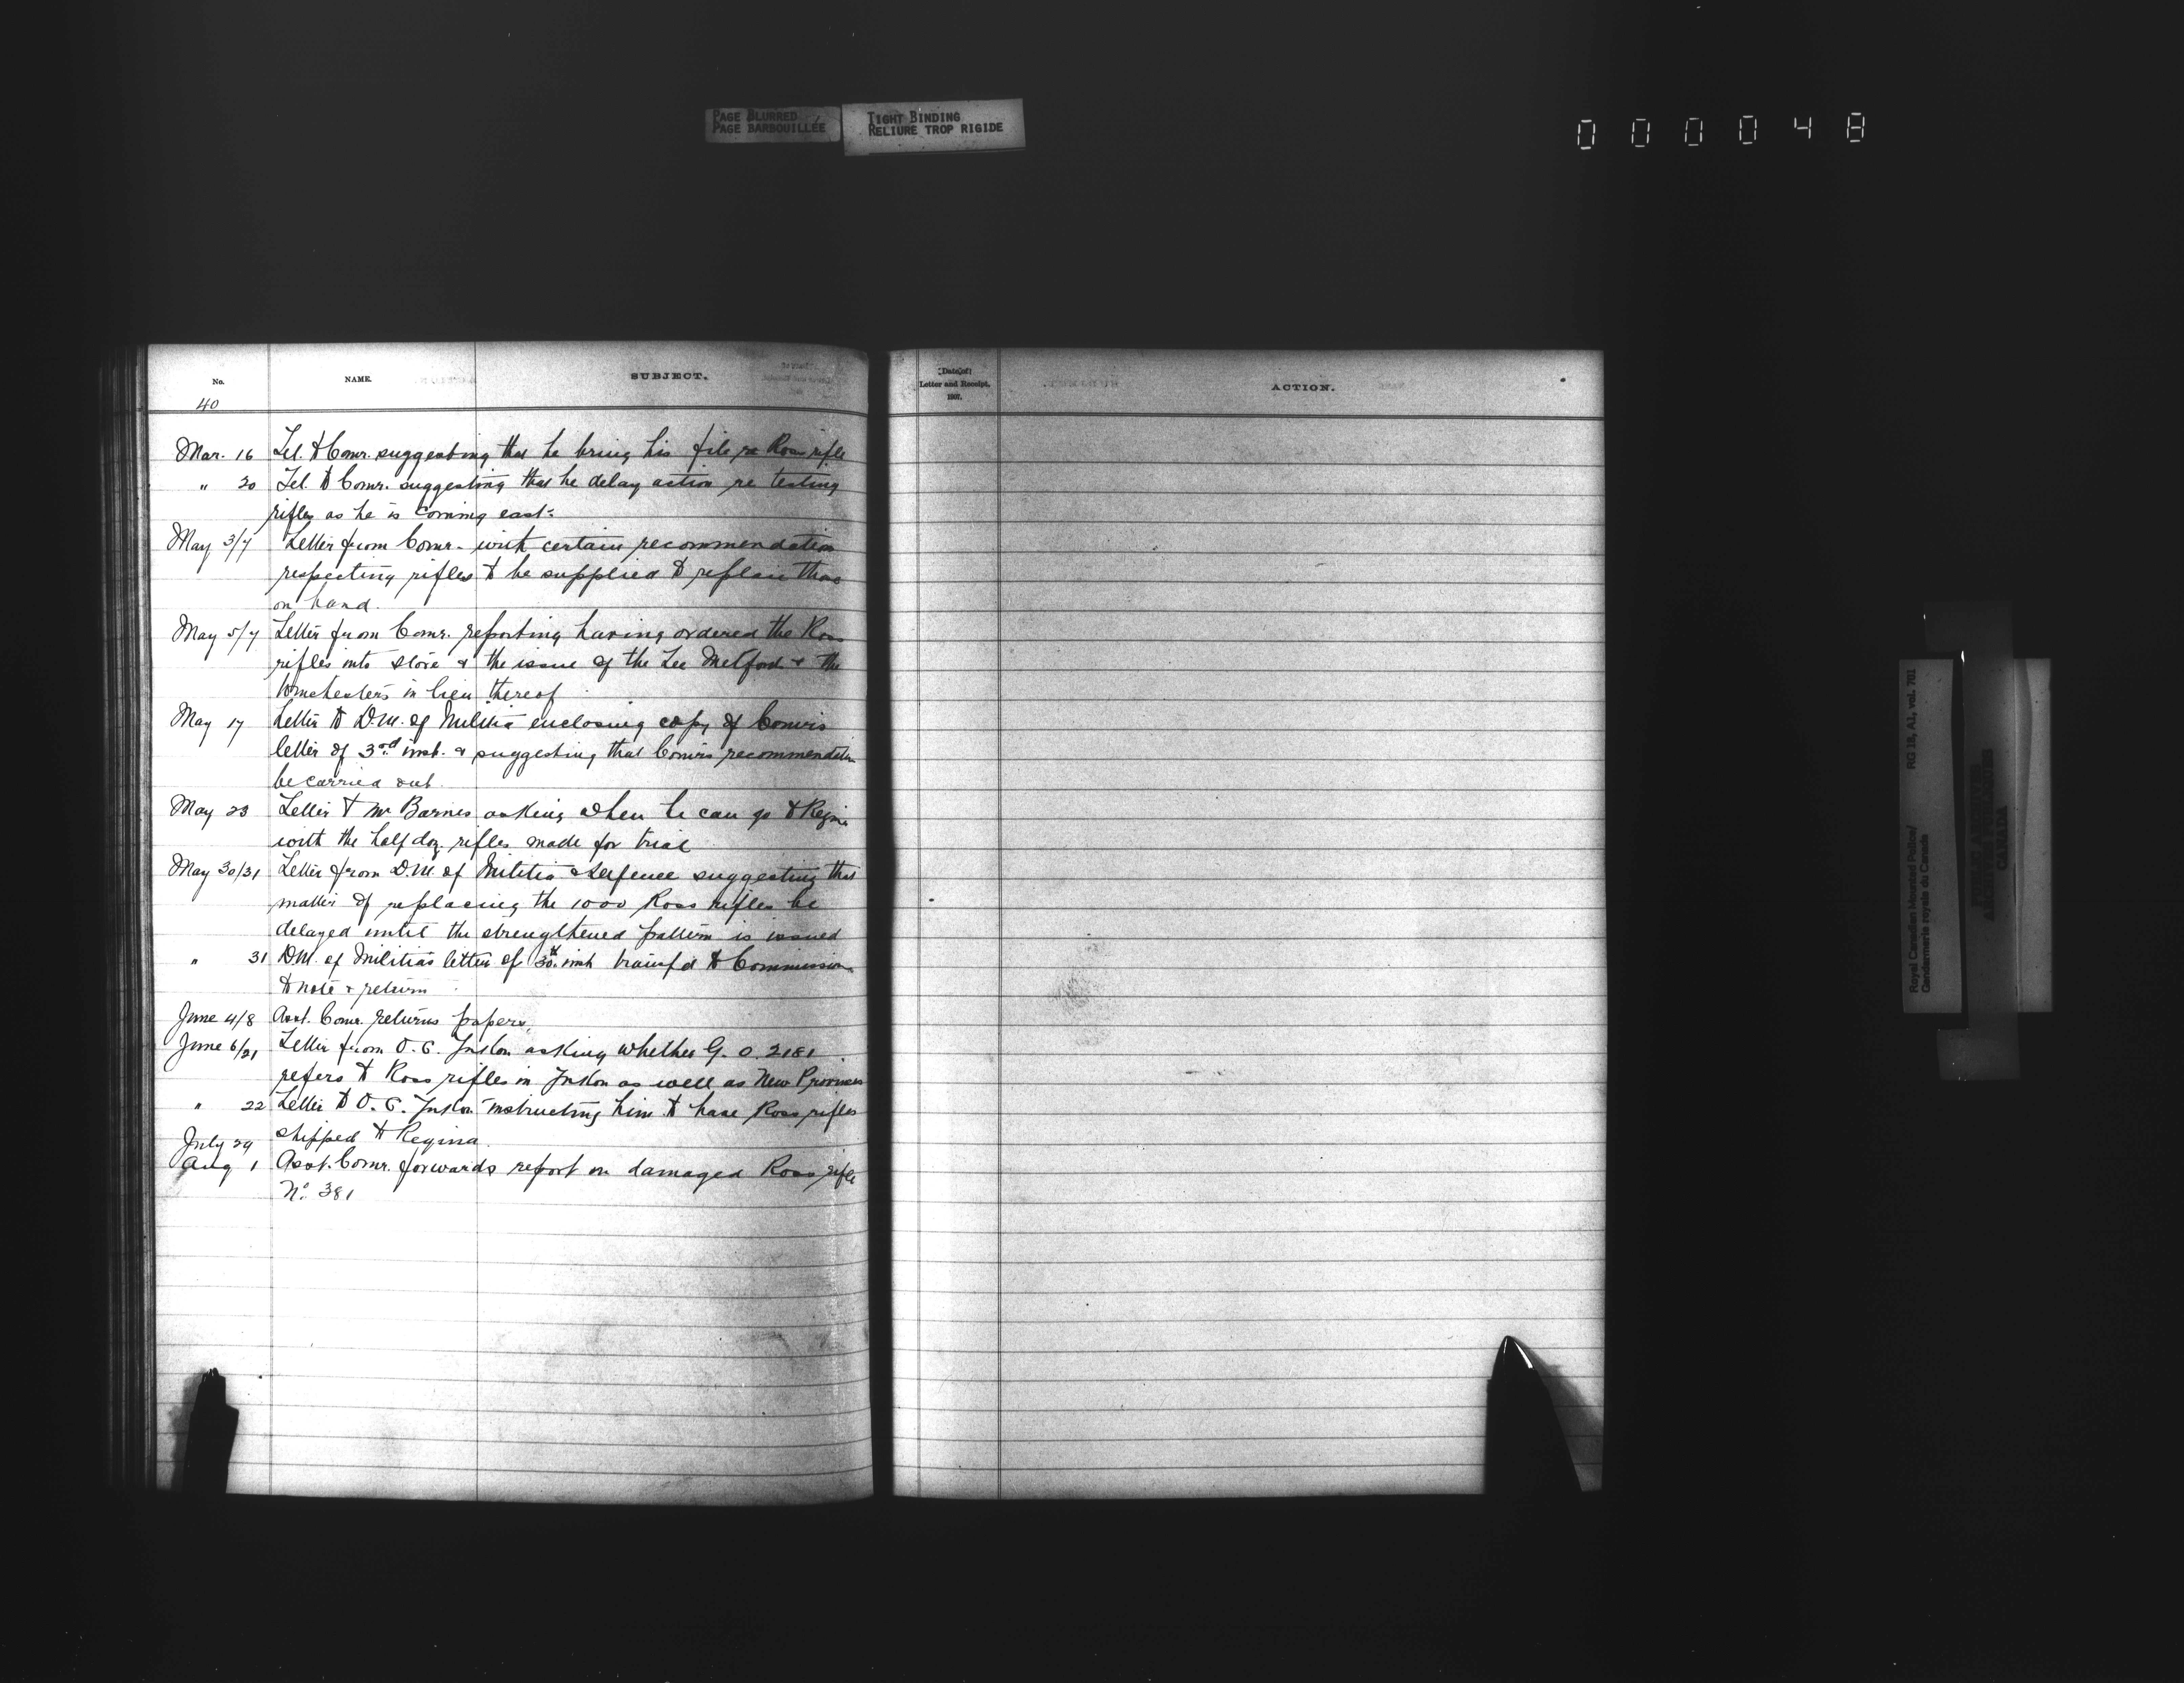 PAGE BLURRED
PAGE BARBOUILLÉE
TIGHT BINDING
RELIURE TROP RIGIDE
000048
No.
NAME.
SUBJECT.
40
Mar. 16 Tel. to Comr. suggesting that he bring his file re Ross rifle
" 20 Tel. to Comr. suggesting that he delay action re testing
rifles as he is coming east.
May 3/7 Letter from Comr. with certain recommendation
respecting rifles to be supplied to replace those
on hand.
May 5/7 Letter from Comr. reporting having ordered the Ross
rifles into store & the issue of the Lee Metford & the
Winchesters in lieu thereof
May 17 Letter to D.M. of Militia enclosing copy of Comr's
letter of 3rd inst. & suggesting that Comr's recommendation
be carried out.
May 23 Letter to Mr Barnes asking when he can go to Regina
with the half doz. rifles made for trial
May 30/31 Letter from D.M. of Militia & Defence suggesting that
matter of replacing the 1000 Ross rifles be
delayed until the strengthened pattern is issued
" 31 DM. of Militia's letter of 30th inst transfd to Commissioner
to note & return
June 4/8 Asst. Comr. returns papers.
June 6/21 Letter from O.C. Yukon asking whether G.O. 2181
refers to Ross rifles in Yukon as well as New Provinces
" 22 Letter to O.C. Yukon instructing him to have Ross rifles
shipped to Regina.
July 29
Aug 1 Asst. Comr. forwards report on damaged Ross rifle
No. 381
Date of
Letter and Receipt.
1907.
ACTION.
Royal Canadian Mounted Police/
Gendarmerie royale du Canada
RG 18, A1, vol. 701
PUBLIC ARCHIVES
ARCHIVES PUBLIQUES
CANADA